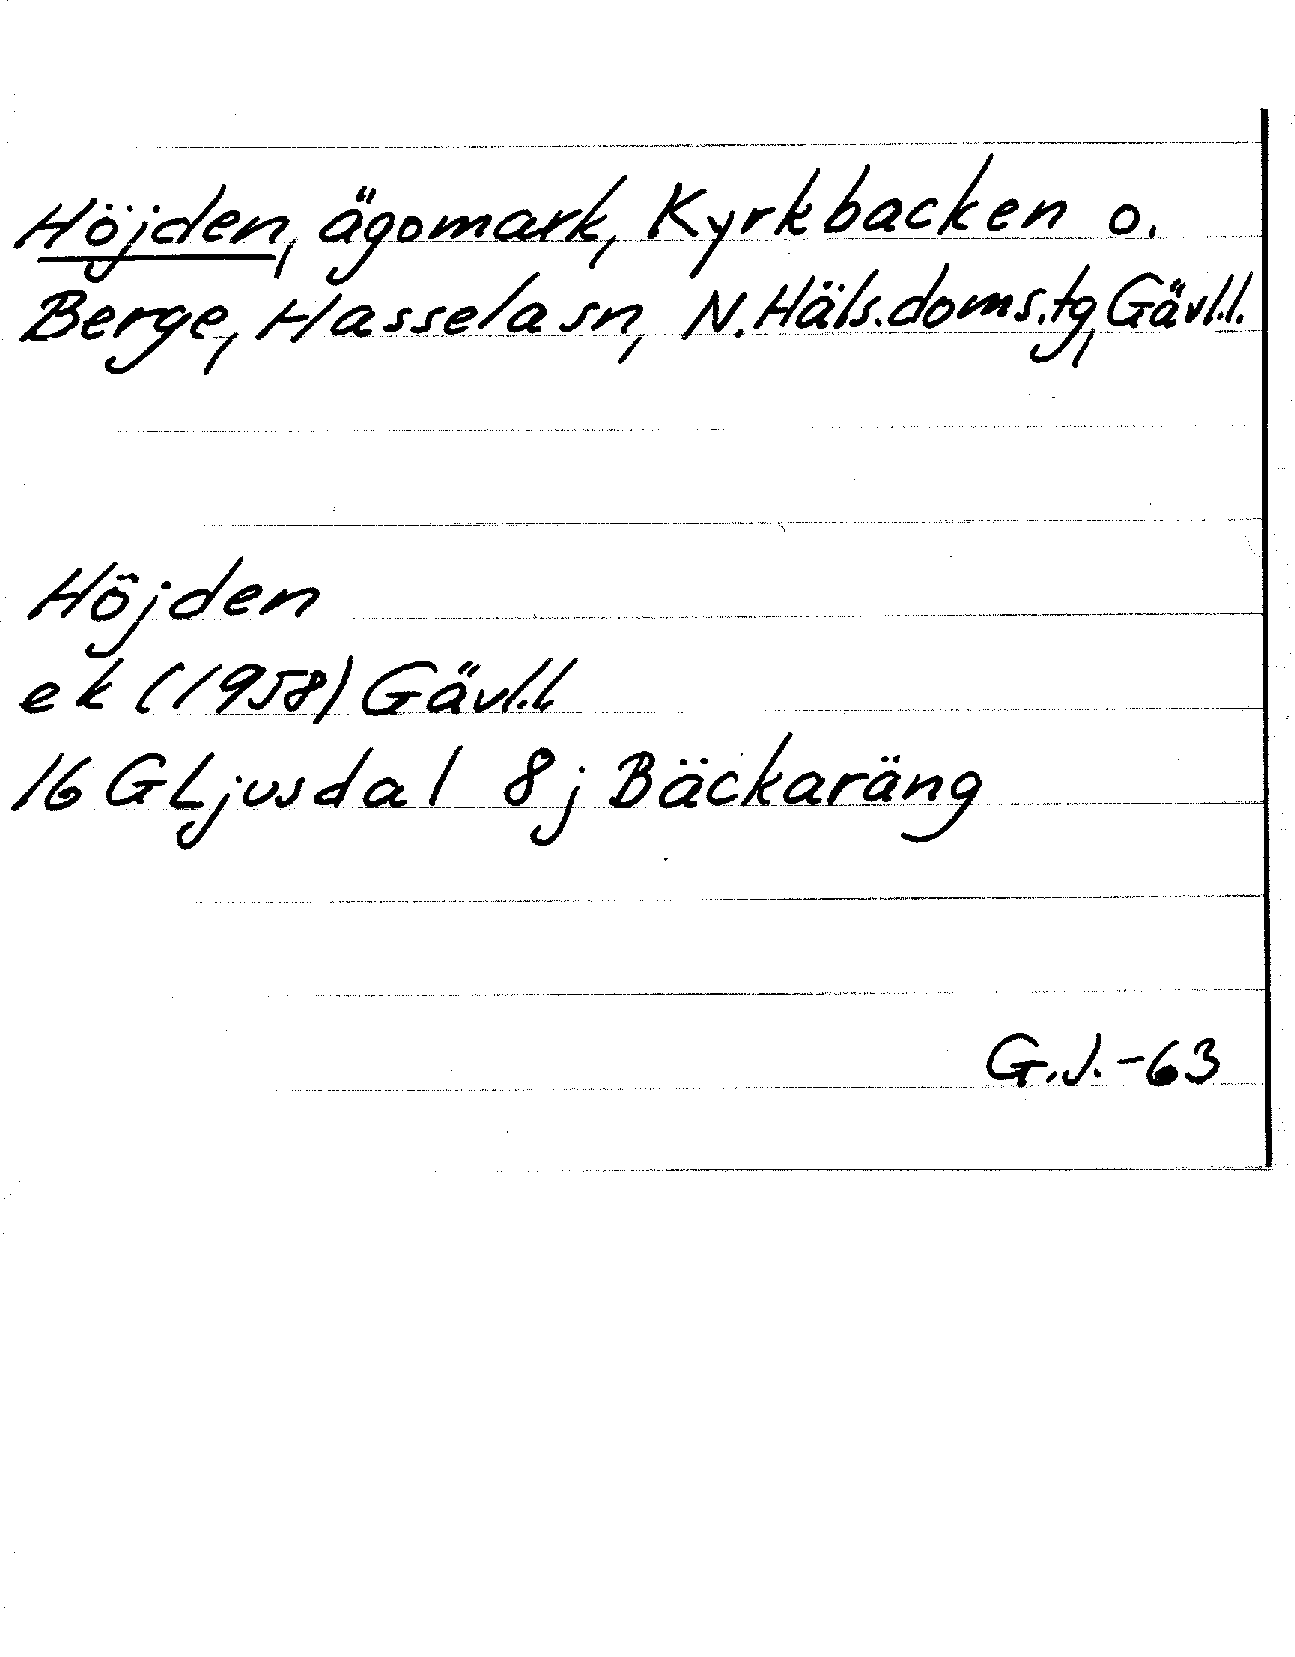 Höjden, ägomark, Kyrkbacken o.
Berge, Hassela sn, N. Häls. doms.tg, Gävl.l.
Höjden
ek (1958) Gävl.l.
16 G Ljusdal 8 j Bäckaräng
G.J.-63